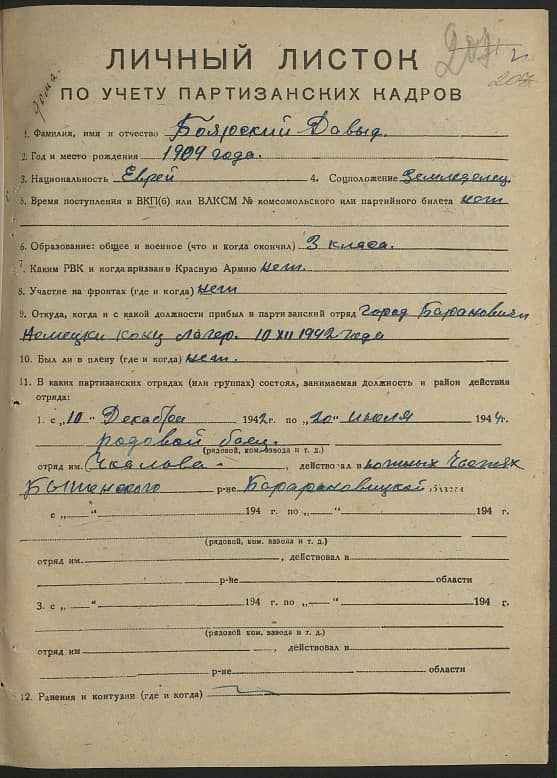 207 г.
207
дома.
ЛИЧНЫЙ ЛИСТОК
ПО УЧЕТУ ПАРТИЗАНСКИХ КАДРОВ
1. Фамилия, имя и отчество Боярский Давыд.
2. Год и место рождения 1909 года.
3. Национальность Еврей 4. Соцположение Земледелец
5. Время поступления в ВКП(б) или ВЛКСМ № комсомольского или партийного билета нет
6. Образование: общее и военное (что и когда окончил) 3 класа.
7. Каким РВК и когда призван в Красную Армию нет.
8. Участие на фронтах (где и когда) нет
9. Откуда, когда и с какой должности прибыл в партизанский отряд город Барановичи
Немецки конц лагер. 10 XII 1942 года
10. Был ли в плену (где и когда) нет.
11. В каких партизанских отрядах (или группах) состоял, занимаемая должность и район действия
отряда:
1. с „10“ Декабря 1942 г. по „20“ июля 1944 г.
родовой боец.
(рядовой, ком. взвода и т. д.)
отряд им. Чкалова. , действовал в южных частях
Бытенского р-не Барарановицкой области
с „ “ 194 г. по „ “ 194 г.
(рядовой, ком. взвода и т. д.)
отряд им. , действовал в
р-не области
3. с „ “ 194 г. по „ “ 194 г.
(рядовой ком. взвода и т. д.)
отряд им , действовал в
р-не области
12. Ранения и контузии (где и когда)